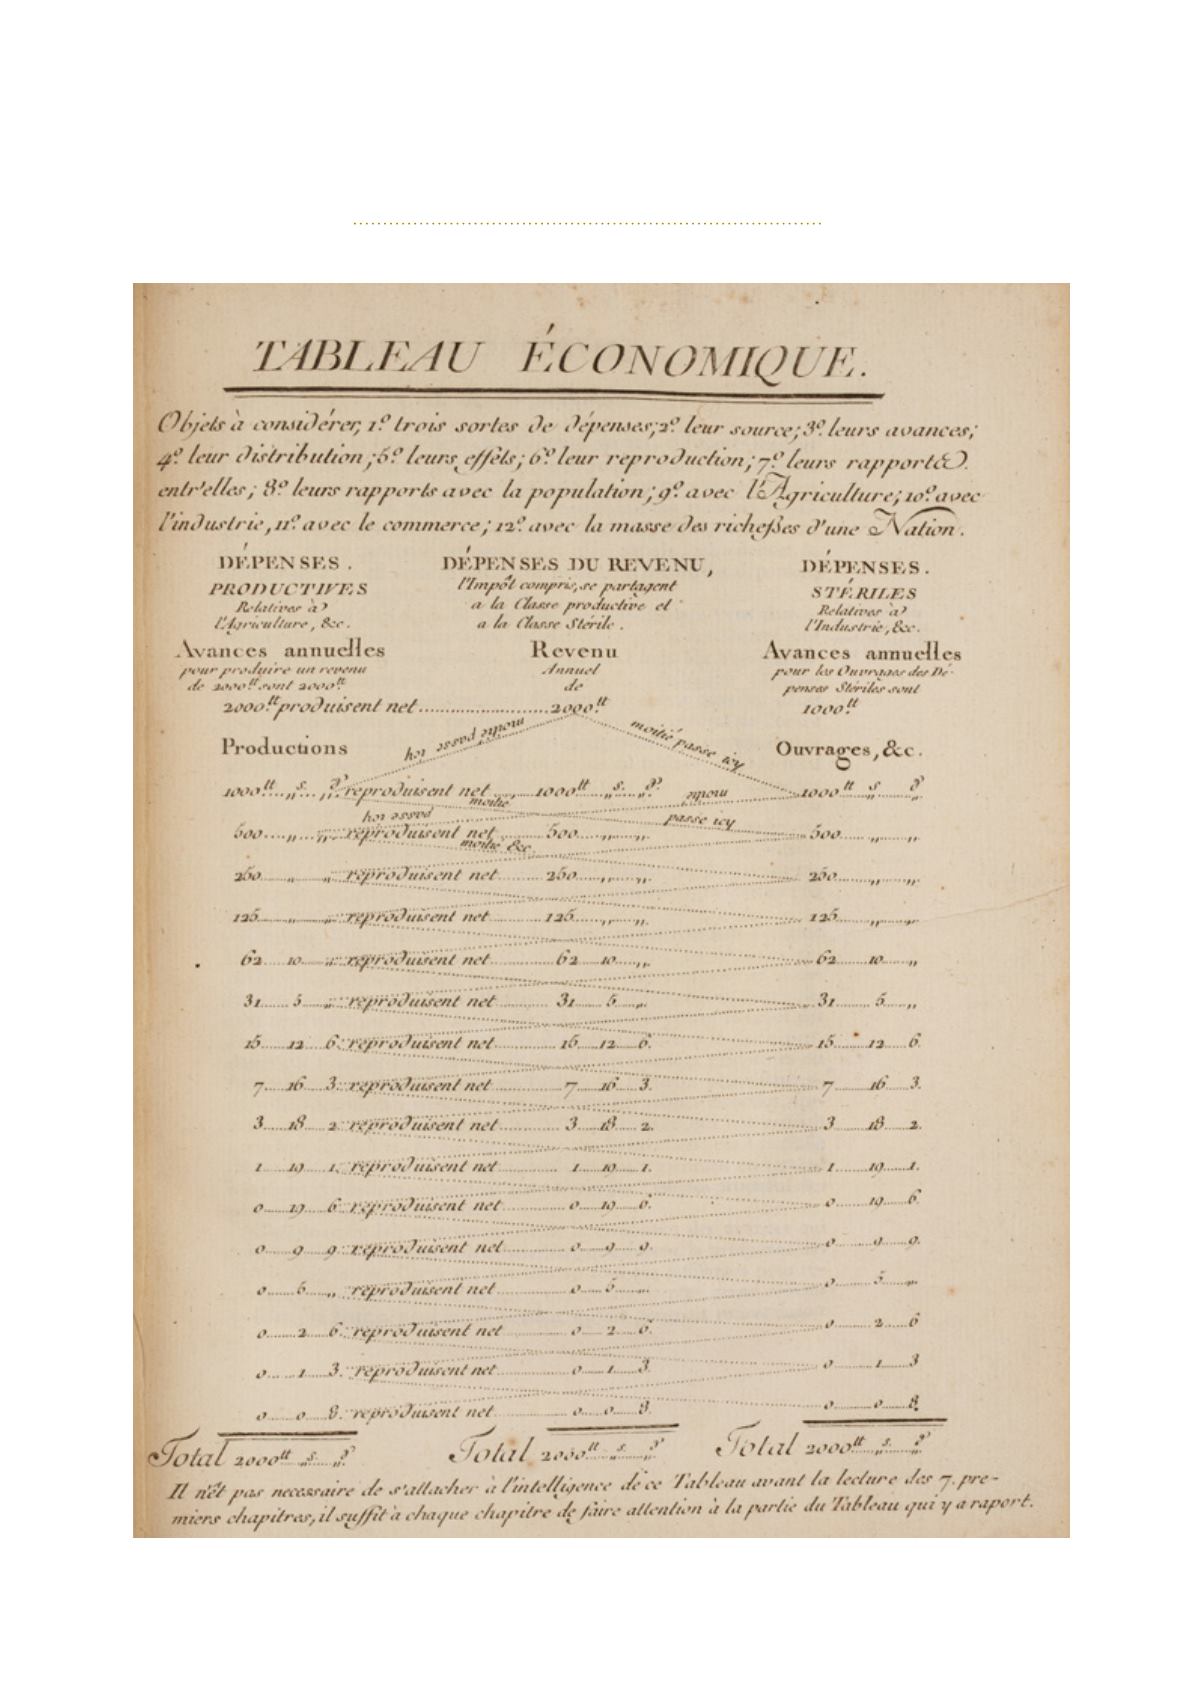 TABLEAU ÉCONOMIQUE.
Objets à considérer, 1.º trois sortes de dépenses; 2.º leur source; 3.º leurs avances;
4.º leur distribution; 5.º leurs effets; 6.º leur reproduction; 7.º leurs rapports
entr'elles; 8.º leurs rapports avec la population; 9.º avec l'Agriculture; 10.º avec
l'industrie, 11.º avec le commerce; 12.º avec la masse des richesses d'une Nation.
DÉPENSES.
PRODUCTIVES
Relatives à
l'Agriculture, &c.
DÉPENSES DU REVENU,
l'Impôt compris, se partagent
a la Classe productive et
a la Classe Stérile.
DÉPENSES.
STÉRILES
Relatives à
l'Industrie, &c.
Avances annuelles
pour produire un revenu
de 2000.tt sont 2000.tt
Revenu
Annuel
de
Avances annuelles
pour les Ouvrages des Dé-
penses Stériles sont
2000.tt produisent net..........2000.tt 1000.tt
moitié passe icy moitié passe icy
Productions Ouvrages, &c.
1000tt.. „ s.. „ d. reproduisent net......1000tt „ s.. „ d. 1000tt „ s „ d
moitié moitié
passe icy passe icy
500..... „ .... „ reproduisent net...... 500..... „ ... „ 500..... „ ... „
moitié &c.
250..... „ .... „ reproduisent net...... 250..... „ ... „ 250..... „ ... „
125..... „ .... „ reproduisent net...... 125..... „ ... „ 125..... „ ... „
62.... 10.... „ reproduisent net...... 62... 10... „ 62.... 10.... „
31.... 5.... „ reproduisent net...... 31... 5... „ 31.... 5.... „
15.... 12... 6. reproduisent net...... 15... 12... 6. 15.... 12... 6.
7.... 16... 3. reproduisent net...... 7... 16... 3. 7.... 16... 3.
3.... 18... 2. reproduisent net...... 3... 18... 2. 3.... 18... 2.
1.... 19... 1. reproduisent net...... 1... 19... 1. 1.... 19... 1.
0.... 19... 6. reproduisent net...... 0... 19... 6. 0.... 19... 6.
0.... 9... 9. reproduisent net...... 0... 9... 9. 0.... 9... 9.
0.... 5... „ reproduisent net...... 0... 5... „ 0.... 5... „
0.... 2... 6. reproduisent net...... 0... 2... 6. 0.... 2... 6
0.... 1... 3. reproduisent net...... 0... 1... 3. 0.... 1... 3
0.... 0... 8. reproduisent net...... 0... 0... 8. 0.... 0... 8.
Total 2000tt.. „ s.. „ d Total 2000tt.. „ s.. „ d Total 2000tt.. „ s.. „ d
Il n'êt pas necessaire de s'attacher à l'intelligence de ce Tableau avant la lecture des 7. pre-
miers chapitres, il suffit à chaque chapitre de faire attention à la partie du Tableau qui y a raport.